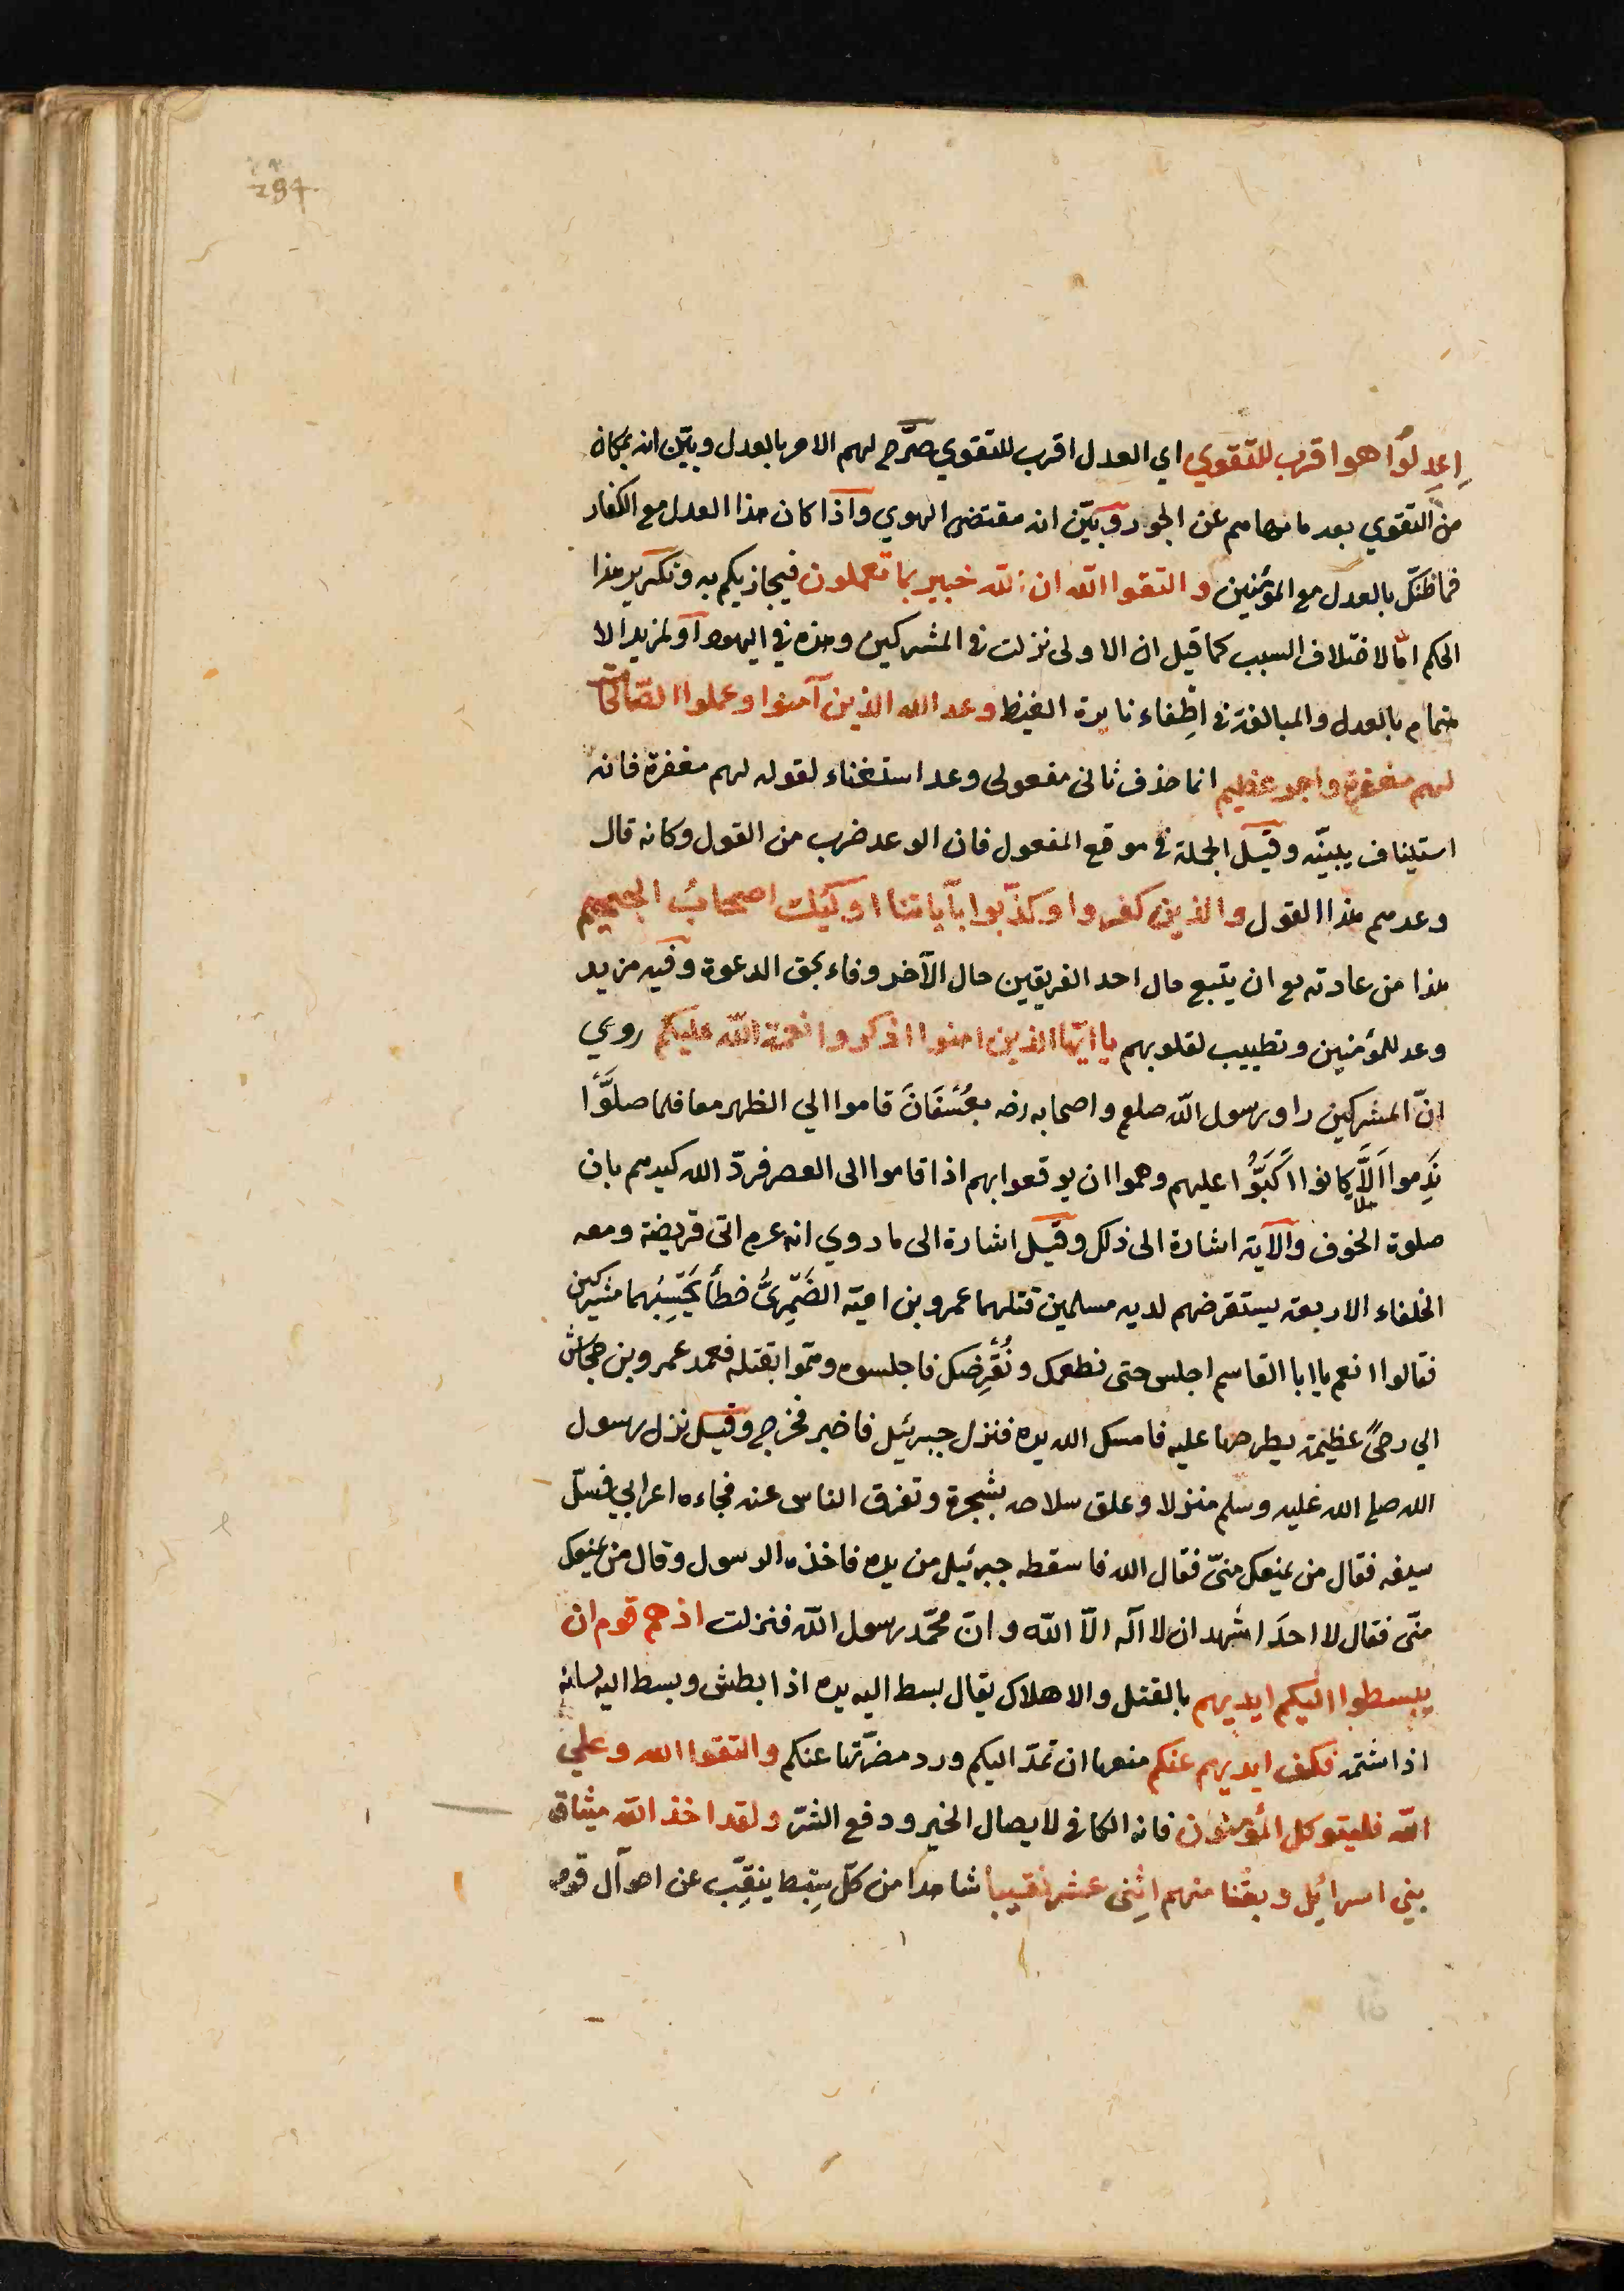 294
اِعدِلُوا هو اقرب للتقوي اي العدل اقرب للتقوي صرّح لهم الامر بالعدل وبيّن انه بمكان
من التقوي بعد ما نهاهم عن الجور وبيّن انه مقتضى الهوي واذا كان هذا العدل مع الكفار
فما ظنّك بالعدل مع المؤمنين و التقوا الله ان الله خبير بما تعملون فيجازيكم به وتكرير هذا
الحكم امّا لاختلاف السبب كما قيل ان الاولى نزلت في المشركين وهذه في اليهود او لمزيد الا
هتمام بالعدل والمبالغة في اطِفاء نايرة الغيظ وعد الله الذين آمنوا وعملوا الصّالحات
لهم مغفرة واجر عظيم انما حذف ثانى مفعولى وعد استغناء لقوله لهم مغفرة فانه
استيناف يبينّه وقيل الجملة في موقع المفعول فان الوعد ضرب من القول وكانه قال
وعدهم هذا القول والذين كفروا وكذّبوا بآياتنا اوكئِك اصحابُ الجحيم
هذا من عادته تع ان يتبع حال احد الفريقين حال الآخر وفاء بحق الدعوة وفيه مزيد
وعد للمؤمنين وتطييب لقلوبهم يا ايّها الذين امنوا اذكروا نعمة الله عليكم روي
انّ المشركين راو رسول الله صلعم واصحابه رضه بعُسْفَانَ قاموا الي الظهر معا فلما صلَّوْا
نَدِموا اَلَّا كانوا اَكَبَّوُا عليهم وهموا ان يوقعوا بهم اذا قاموا الى العصر فردّ الله كيدهم بان
صلوة الخوف والآية اشارة الى ذلك وقيل اشارة الى ما روي انه عم اتى قريضة ومعه
الخلفاء الاربعة يستقرضهم لديه مسلمين قتلهما عمرو بن امية الضَمْرِيُّ خطأ يَحْسِبُهما مشركين
فقالوا نعم يا ابا القاسم اجلس حتى نطعمك ونُقْرِضك فاجلسوه وهمّوا بقتله فعمد عمرو بن جحاش
الي رحىً عظيمة يطرحها عليه فامسك الله يده فنزل جبرئيل فاخبر فخرج وقيل نزل رسول
الله صلى الله عليه وسلم منزلا وعلق سلاحه بشجرة وتفرق الناس عنه فجاءه اعرابي فسلّ
سيفه فقال من يمنعك منىّ فقال الله فاسقطه جبرئيل من يده فاخذه الرسول وقال من يمنعك
منّى فقال لا احدَ اشهد ان لا اله الّا الله وانّ محمّد رسول الله فنزلت اذ هم قوم ان
يبسطوا اليكم ايديهم بالقتل والاهلاك يقال بسط اليه يده اذا بطش وبسط اليه لسانه
اذا شتمه فكف ايديهم عنكم منعها ان تمدّ اليكم ورد مضرّتها عنكم والتقوا الله وعلي
الله فليتوكل المؤمنون فانه الكافي لايصال الخير ودفع الشرّ ولقد اخذ الله ميثاق
بني اسرائيل وبعثنا منهم اثِنى عشر نقيبا شاهدا من كلّ سِبط ينقِّب عن احوآل قومه